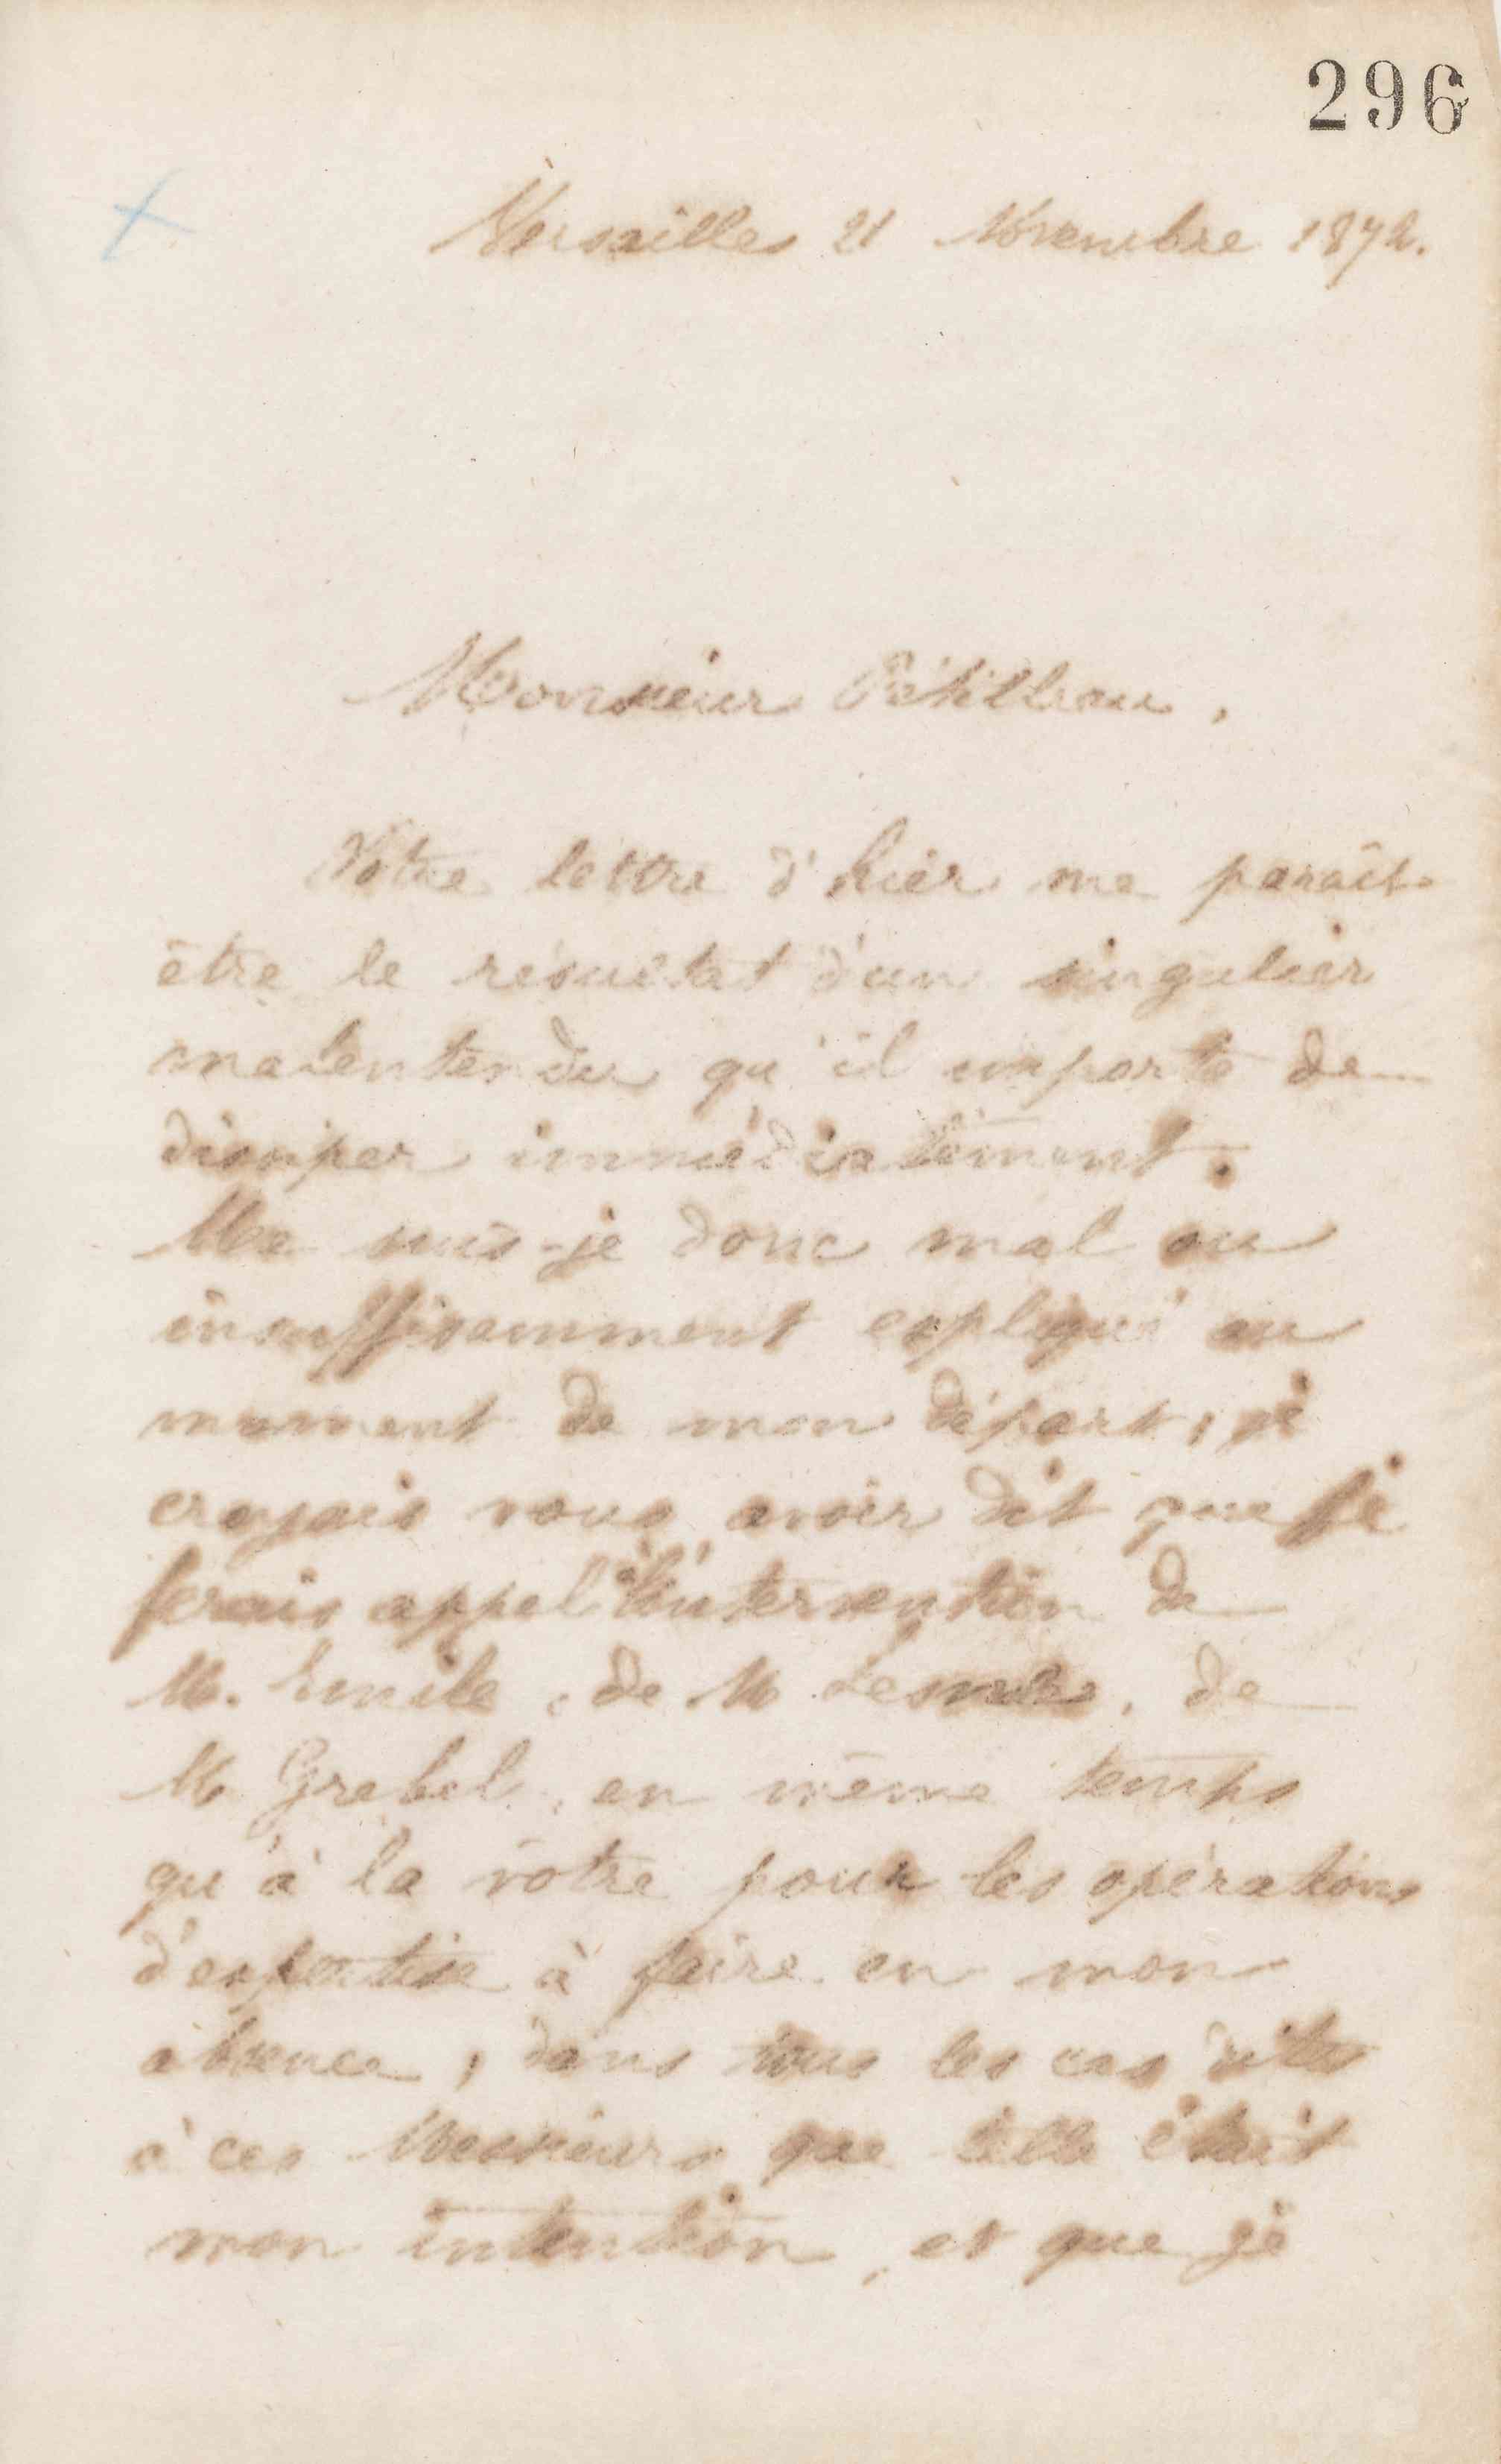 296
Versailles 21 Novembre 1872.
Monsieur Pétilleau,
Votre lettre d'hier me paraît
être le résultat d'un singulier
malentendu qu'il importe de
dissiper immédiatement.
Me suis-je donc mal ou
insuffisamment expliqué au
moment de mon départ, je
croyais vous avoir dit que je
ferais appel à l'intervention de
M. Emile, de M. Lesnes, de
M Grebel, en même temps
qu'à la vôtre pour les opérations
d'expertise à faire en mon
absence, dans tous les cas dites
à ces Messieurs que telle était
mon intention, et que je